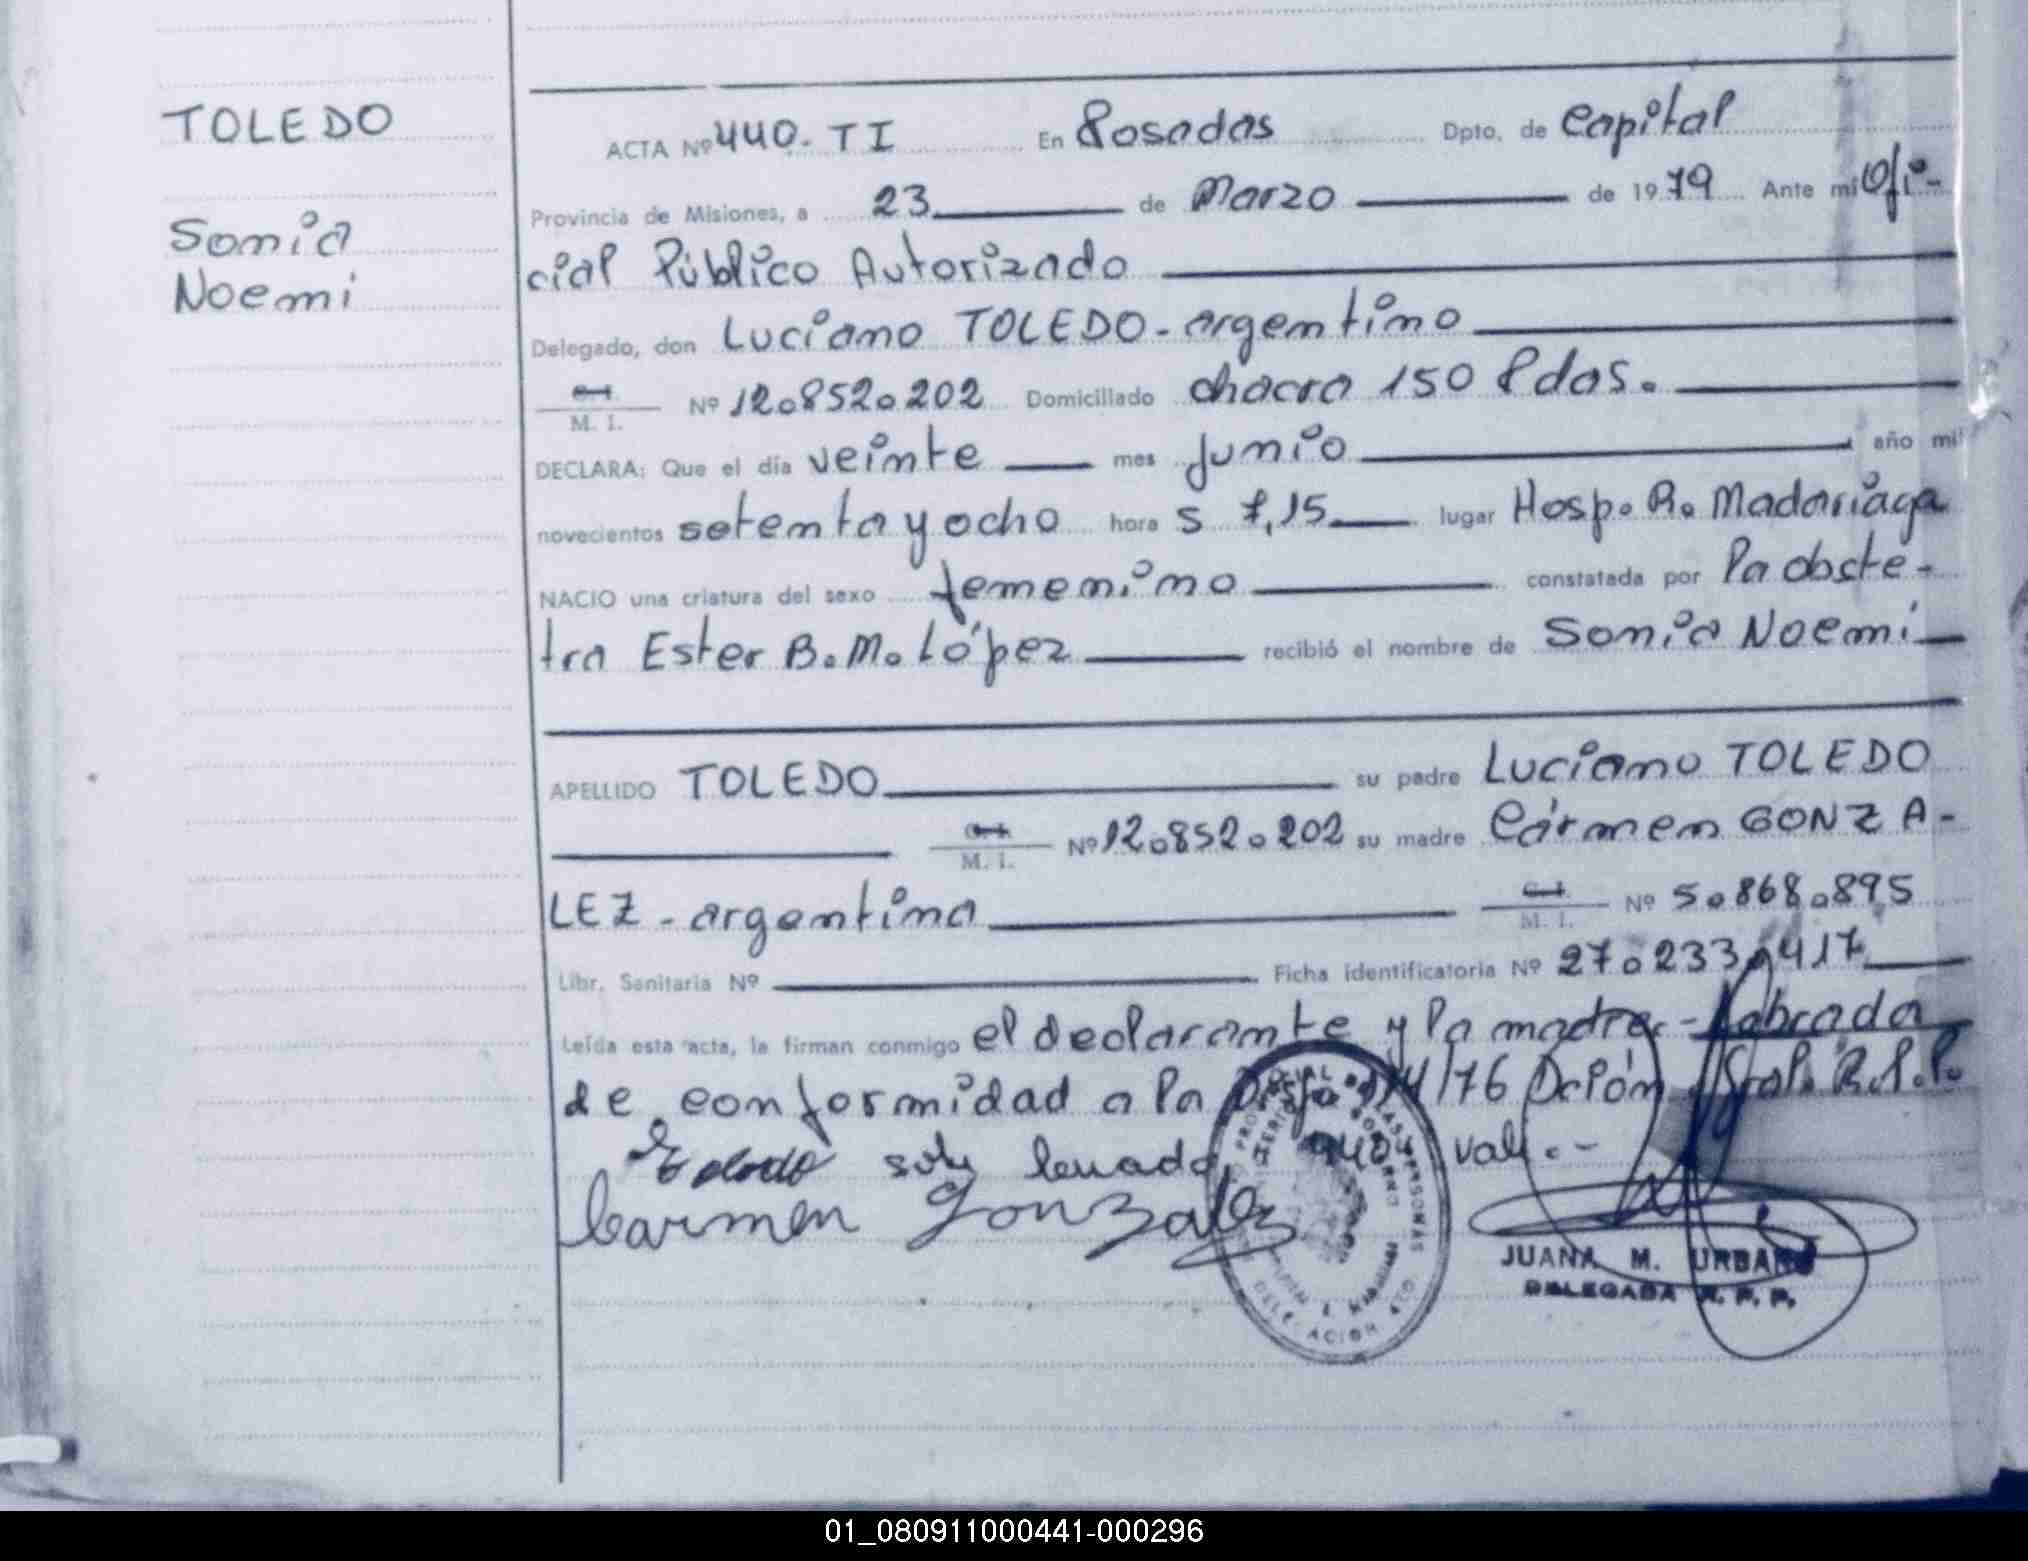 TOLEDO
Sonia
Noemi
ACTA Nº 440. TI En Posadas Dpto. de Capital
Provincia de Misiones, a 23 de Marzo de 1979 Ante mi Ofi-
cial Público Autorizado
Delegado, don Luciano TOLEDO - argentino
C. I.
M. I. Nº 12.852.202 Domiciliado chacra 150 Pdas.
DECLARA: Que el día veinte mes junio año mil
novecientos setenta y ocho hora s 7,15 lugar Hosp. R. Madariaga
NACIO una criatura del sexo femenino constatada por la obste-
tra Ester B. M. López recibió el nombre de Sonia Noemi
APELLIDO TOLEDO su padre Luciano TOLEDO
C. I.
M. I. Nº 12.852.202 su madre Cármen GONZA-
LEZ - argentina C. I.
M. I. Nº 5.868.895
Libr. Sanitaria Nº Ficha identificatoria Nº 27.233.417
Leída esta acta, la firman conmigo el declarante y la madre - Labrada
de conformidad a la 4/76 Dción Gral. R.P.P.
Toledo 440 vale. -
Carmen Gonzalez
JUANA M. URBANO
DELEGADA R. P. P.
01_080911000441-000296